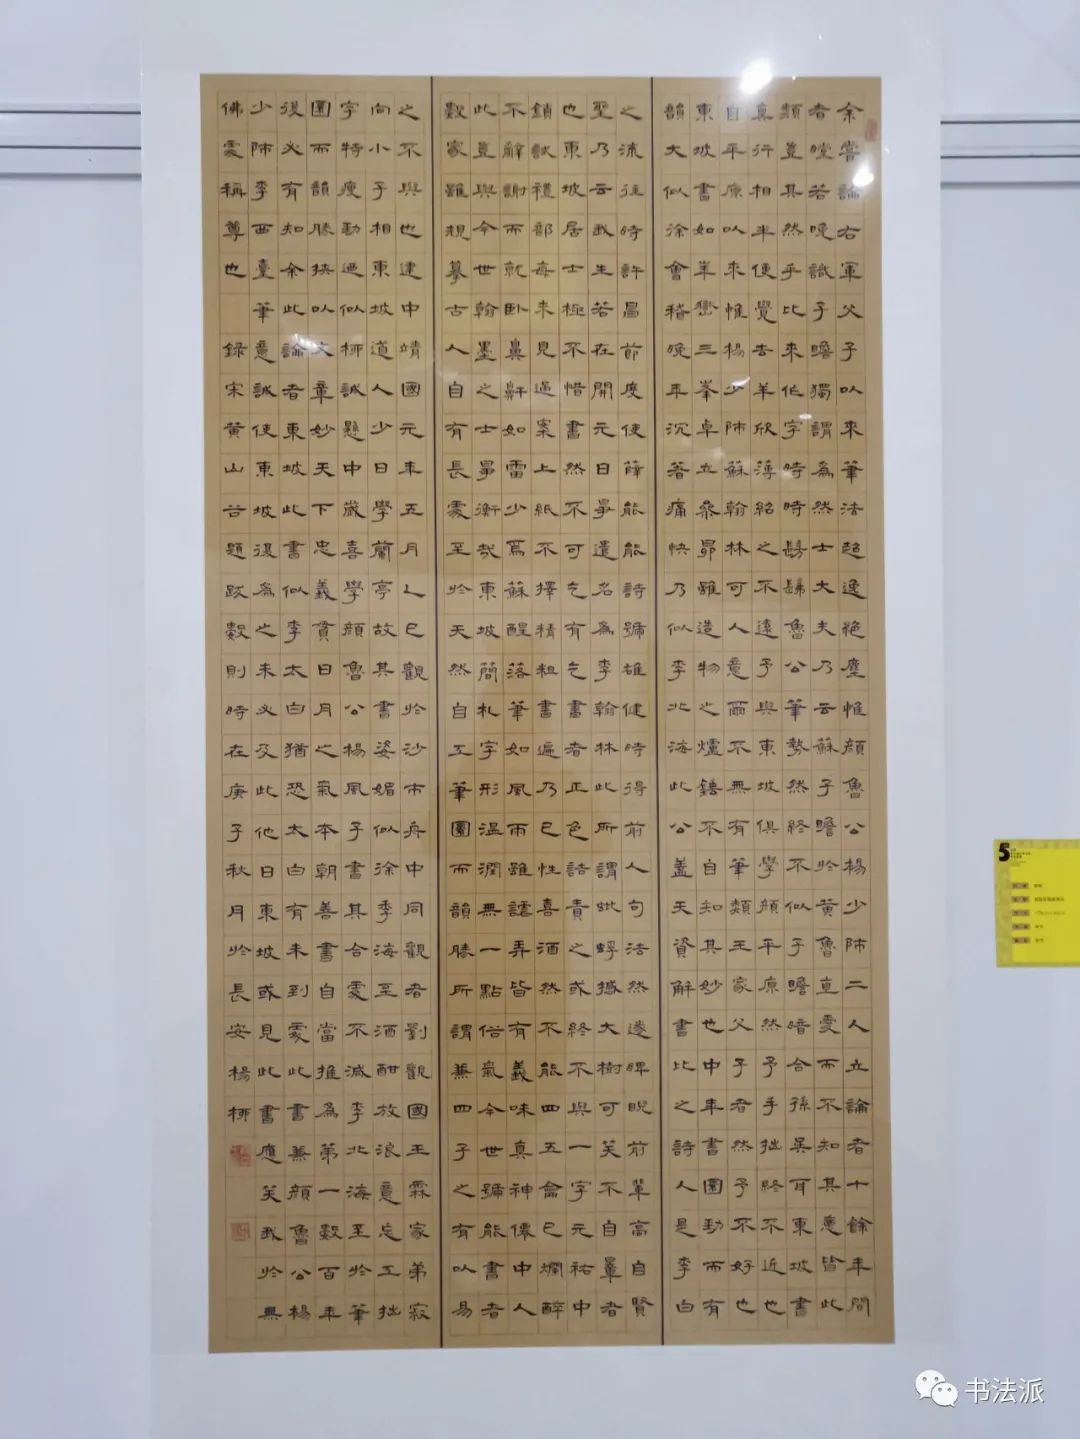 余嘗論右軍父子以來筆法超逸絕塵惟顏魯公楊少師二人立論者十餘年聞
者瞠若晚識子瞻獨謂為然士大夫乃云蘇子瞻於黃魯直愛而不知其惡皆此
類豈其然乎比來作字時時髣髴魯公筆勢然終不似子瞻暗合孫吳耳東坡書
真行相半便覺去羊欣薄紹之不遠予與東坡俱學顏平原然予手拙終不近也
自平原以來惟楊少師蘇翰林可人意爾不無有筆類王家父子者然予不好也
東坡書如華嶽三峯卓立參昴雖造物之爐錘不自知其妙也中年書圓勁而有
韻大似徐會稽晚年沉著痛快乃似李北海此公蓋天資解書比之詩人是李白
之流往時許昌節度使薛能能詩號雄健時得前人句法然遂睥睨前輩高自賢
聖乃云我生若在開元日爭遣名為李翰林此所謂蚍蜉撼大樹可笑不自量者
也東坡居士極不惜書然不可乞有乞書者正色詰責之或終不與一字元祐中
鎖試禮部每來見過案上紙不擇精粗書遍乃已性喜酒然不能四五龠已爛醉
不辭謝而就臥鼻鼾如雷少焉蘇醒落筆如風雨雖謔弄皆有義味真神僊中人
此豈與今世翰墨之士爭衡哉東坡簡札字形溫潤無一點俗氣今世號能書者
數家雖規摹古人自有長處至於天然自工筆圓而韻勝所謂兼四子之有以易
之不與也建中靖國元年五月乙巳觀於沙市舟中同觀者劉觀國王霖家弟寂
向小子相東坡道人少日學蘭亭故其書姿媚似徐季海至酒酣放浪意忘工拙
字特瘦勁迺似柳誠懸中歲喜學顏魯公楊風子書其合處不減李北海至於筆
圓而韻勝挾以文章妙天下忠義貫日月之氣本朝善書自當推為第一數百年
後必有知余此論者東坡此書似李太白猶恐太白有未到處此書兼顏魯公楊
少師李西臺筆意誠使東坡復為之未必及此他日東坡或見此書應笑我於無
佛處稱尊也 錄宋黃山谷題跋數則時在庚子秋月於長安楊柳
5
书法派